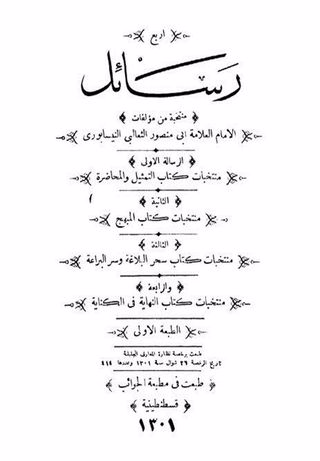 اربع
رسائل
منتخبة من مؤلفات
الامام العلامة ابى منصور الثعالبى النيسابورى
الرسالة الاولى
منتخبات كتاب التمثيل والمحاضرة
الثانية
منتخبات كتاب المبهج
الثالثة
منتخبات كتاب سحر البلاغة وسر البراعة
والرابعة
منتخبات كتاب النهاية فى الكناية
الطبعة الاولى
طبعت برخصة نظارة المعارف الجليلة
تاريخ الرخصة ٢٦ شوال سنة ١٣٠١ وعددها ٤١٤
طبعت فى مطبعة الجوائب
قسطنطينية
١٣٠١